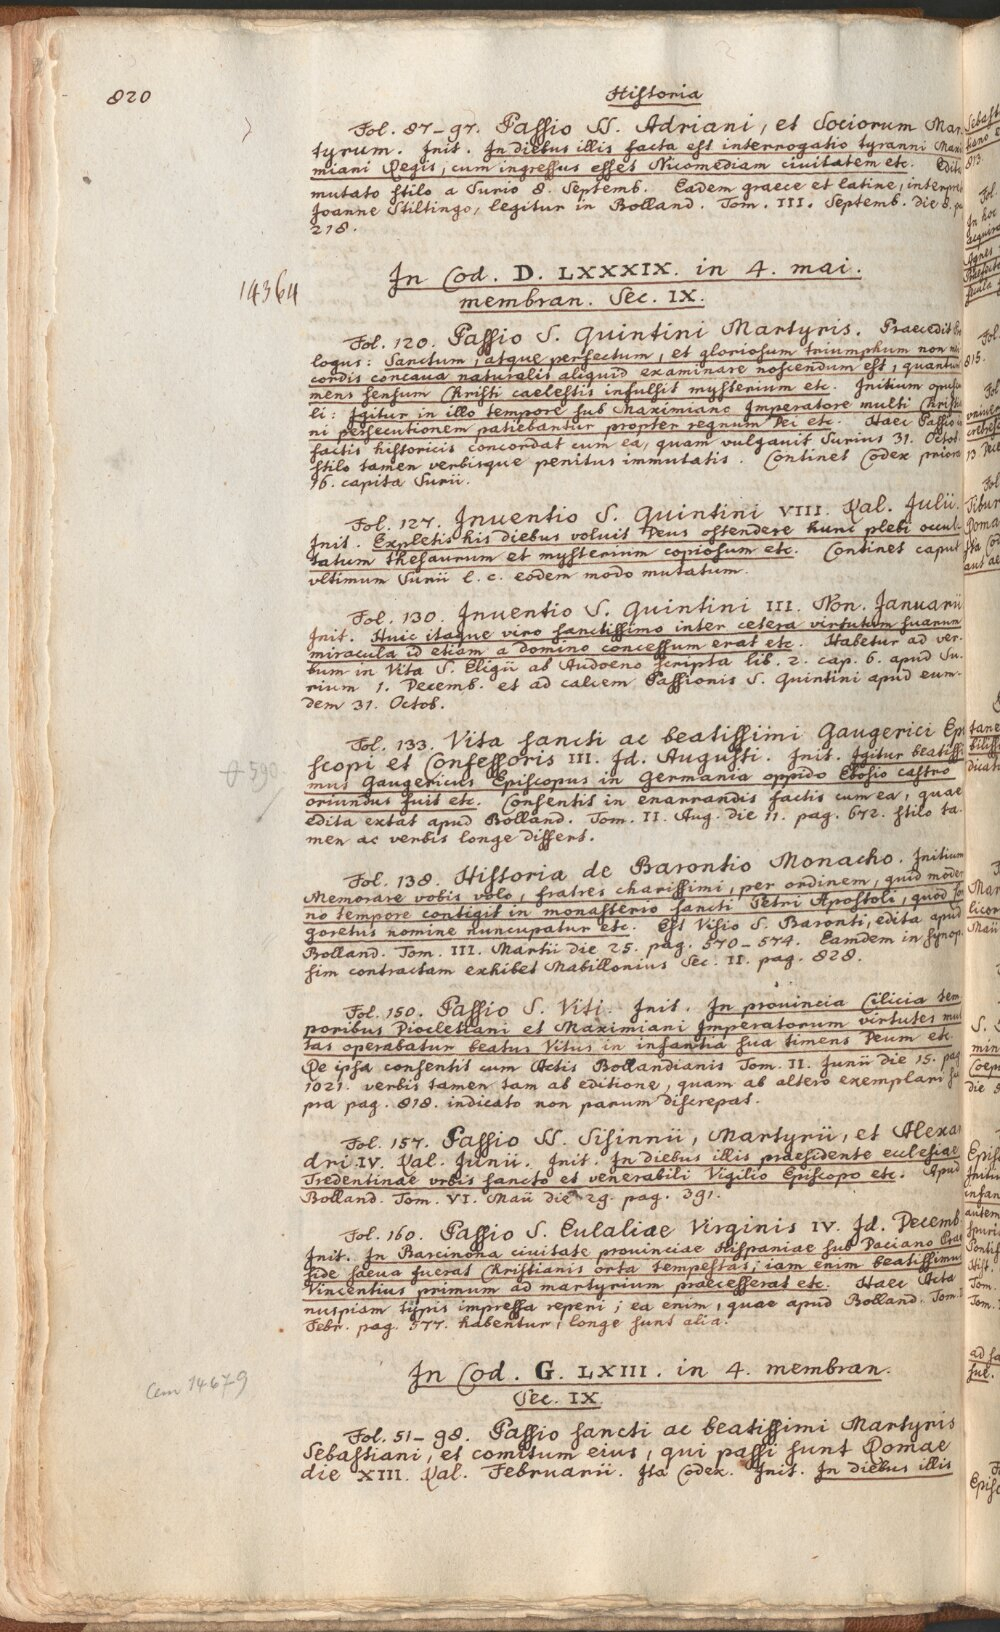 820
Historia
Fol. 87–97. Passio SS. Adriani, et Sociorum Mar
tyrum. Init. In diebus illis facta est interrogatio tyranni Maxi
miani Regis, cum ingressus esset Nicomediam ciuitatem etc. Edita
mutato stilo a Surio 8. Septemb. Eadem graece et latine, interpre
Joanne Stiltingo, legitur in Bolland. Tom. III. Septemb. die 8. pa
218.
14364
In Cod. D. LXXXIX. in 4. mai.
membran. Sec. IX.
Fol. 120. Passio S. Quintini Martyris. Praecedit Pro
logus: Sanctum, atque perfectum, et gloriosum triumphum non
cordis concaua naturalis aliquid examinare noscendum est, quantum
mens sensum Christi caelestis insulsit mysterium etc. Initium opuscu
li: Igitur in illo tempore sub Maximiano Imperatore multi Christia
ni persecutionem patiebantur propter regnum Dei etc. Haec Passio in
factis historicis concordat cum ea, quam vulgauit Surius 31. Octob.
stilo tamen verbisque penitus immutatis. Continet Codex priora
16. capita Surii.
Fol. 127. Inuentio S. Quintini VIII. Kal. Julii.
Init. Expletis his diebus voluit Deus ostendere hunc plebi occul-
tatum thesaurum et mysterium copiosum etc. Continet caput
vltimum Surii l. c. eodem modo mutatum.
Fol. 130. Inuentio S. Quintini III. Non. Januarii
Init. Huic itaque viro sanctissimo inter cetera virtutum suarum
miracula id etiam a domino concessum erat etc. Habetur ad ver-
bum in Vita S. Eligii ab Audoeno scripta lib. 2. cap. 6. apud Su-
rium 1. Decemb. et ad calcem Passionis S. Quintini apud eum-
dem 31. Octob.
Fol. 133. Vita sancti ac beatissimi Gaugerici Epi
scopi et Confessoris III. Id. Augusti. Init. Igitur beatissi
mus Gaugericus Episcopus in Germania oppido Ebosio castro
oriundus fuit etc. Consentit in enarrandis factis cum ea, quae
edita extat apud Bolland. Tom. II. Aug. die 11. pag. 672. stilo ta-
men ac verbis longe differt.
590
Fol. 138. Historia de Barontio Monacho. Initium
Memorare vobis volo, fratres charissimi, per ordinem, quid moder
no tempore contigit in monasterio sancti Petri Apostoli, quod Lo
goretus nomine nuncupatur etc. Est Visio S. Baronti, edita apud
Bolland. Tom. III. Martii die 25. pag. 570–574. Eamdem in synop-
sim contractam exhibet Mabillonius Sec. II. pag. 828.
Fol. 150. Passio S. Viti. Init. In prouincia Cilicia tem
poribus Diocletiani et Maximiani Imperatorum virtutes mul
tas operabatur beatus Vitus in infantia sua timens Deum etc.
Re ipsa consentit cum Actis Bollandianis Tom. II. Junii die 15. pag
1021. verbis tamen tam ab editione, quam ab altero exemplari su
pra pag. 818. indicato non parum discrepat.
Fol. 157. Passio SS. Sisinnii, Martyrii, et Alexan
dri IV. Kal. Junii. Init. In diebus illis praesidente ecclesiae
Tredentinae vrbis sancto et venerabili Vigilio Episcopo etc. Apud
Bolland. Tom. VI. Maii die 29. pag. 391.
Fol. 160. Passio S. Eulaliae Virginis IV. Id. Decemb.
Init. In Barcinona ciuitate prouinciae Hispaniae sub Daciano Prae
side saeua fuerat Christianis orta tempestas; iam enim beatissimus
Vincentius primum ad martyrium praecesserat etc. Haec Acta
nuspiam typis impressa reperi; ea enim, quae apud Bolland. Tom.
Febr. pag. 577. habentur, longe sunt alia.
Clm 14679
In Cod. G. LXIII. in 4. membran.
Sec. IX.
Fol. 51–98. Passio sancti ac beatissimi Martyris
Sebastiani, et comitum eius, qui passi sunt Romae
die XIII. Kal. Februarii. Ita Codex. Init. In diebus illis